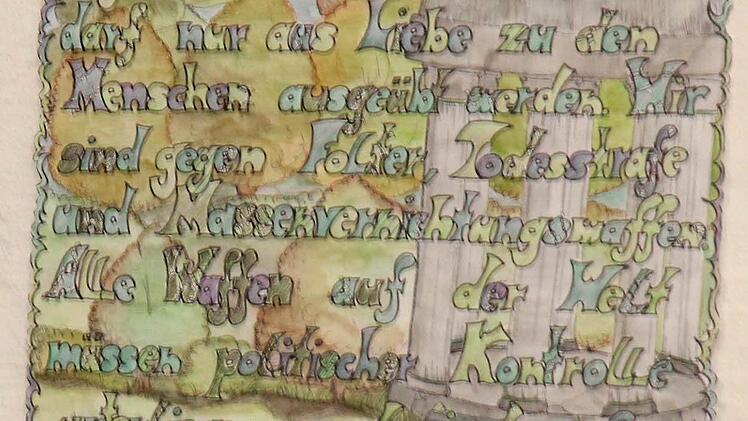 darf nur aus Liebe zu den
Menschen ausgeübt werden Wir
sind gegen Folter, Todesstrafe
und Massenvernichtungswaffen.
Alle Waffen auf der Welt
müssen politischer Kontrolle